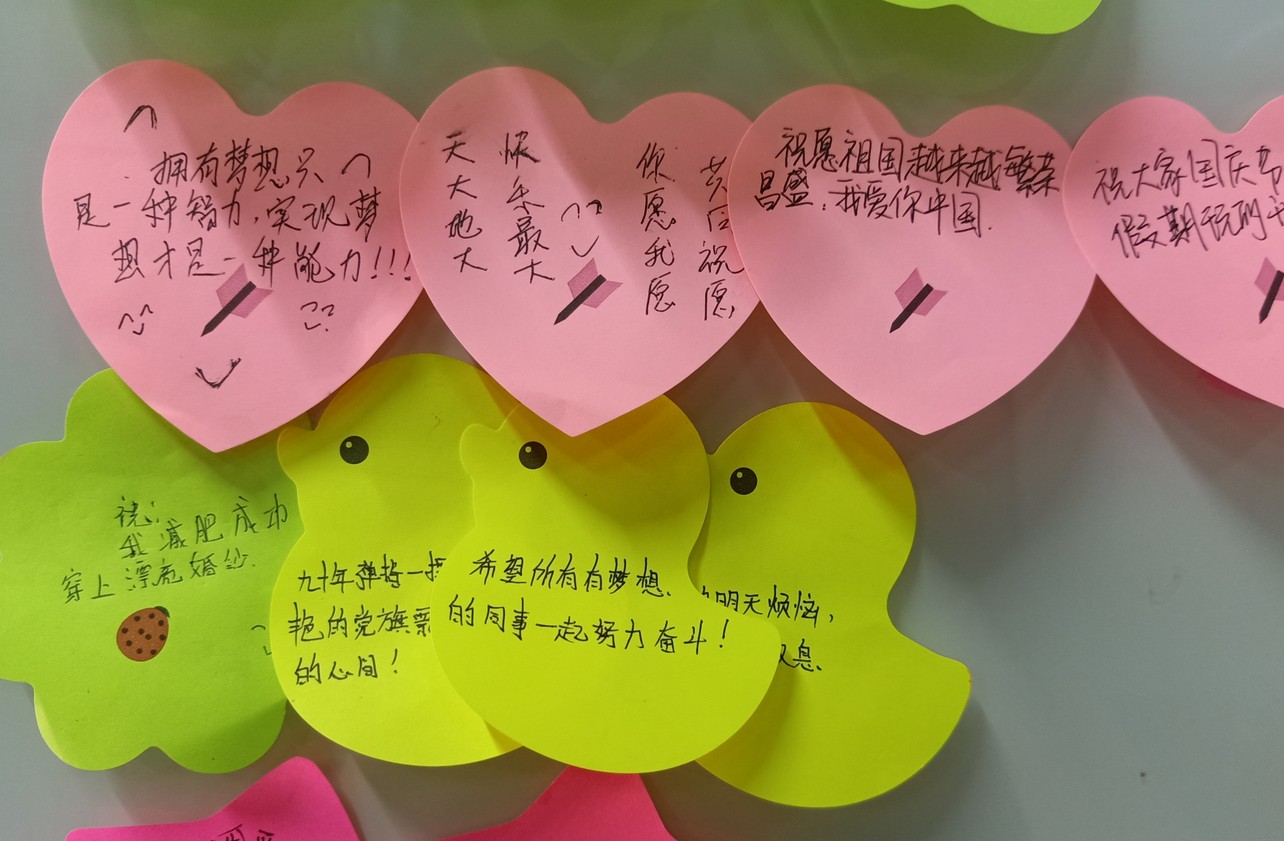 拥有梦想只
是一种智力,实现梦
想才是一种能力!!!
天大地大
快乐最大
你愿我愿
共同祝愿,
祝愿祖国越来越繁荣
昌盛,我爱你中国.
祝大家国庆节
假期玩
祝:
我减肥成功
穿上漂亮婚纱.
九十年弹指一挥
艳的党旗飘
的心间!
希望所有有梦想.
的同事一起努力奋斗!
明天烦恼,
息.